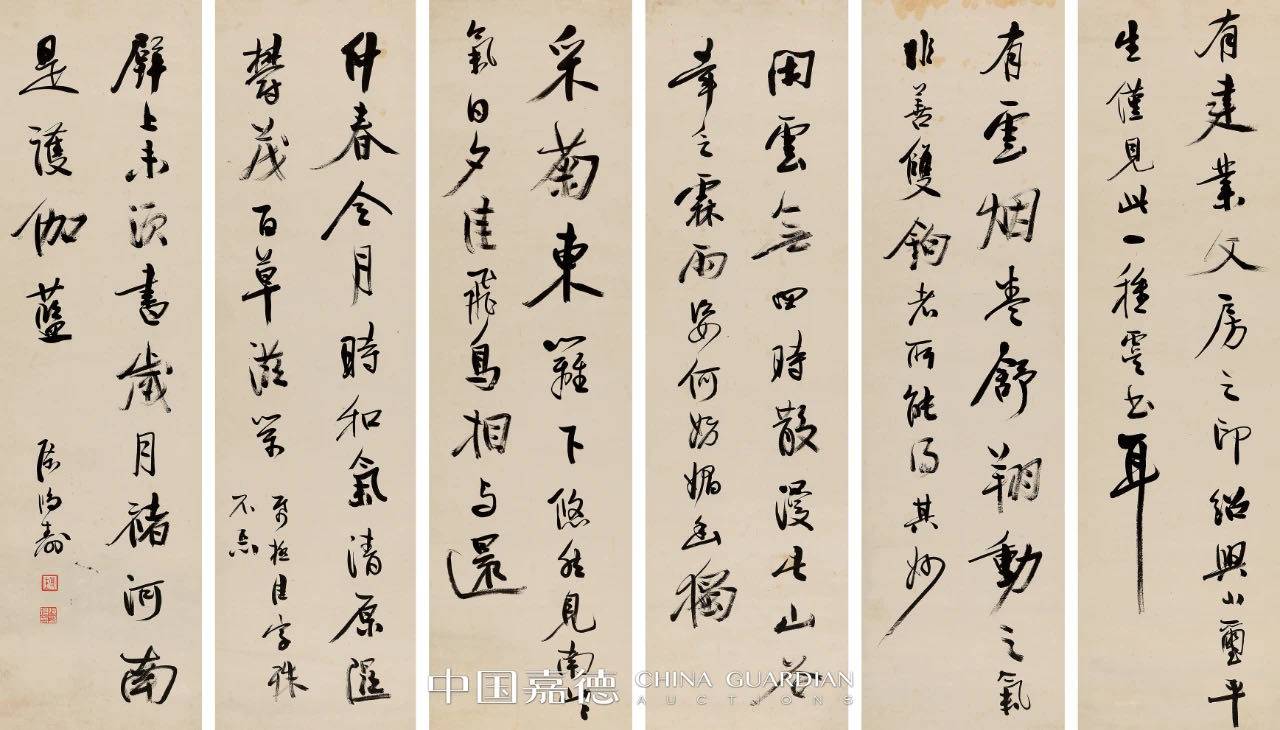 有建業文房之印紹興小璽平
生僅見此一種虞书耳
有雲烟卷舒翔動之氣
非善雙鉤者所能得其妙
閑雲無四時散漫此山谷
幸之霖雨姿何妨媚幽獨
采菊東籬下悠然見南山
氣日夕佳飛鳥相与還
仲春令月時和氣清原隰
鬱茂百草滋榮
字
不
壁上未須書歲月褚河南
是護伽藍
陳鴻壽
中国嘉德 CHINA GUARDIAN
AUCTIONS